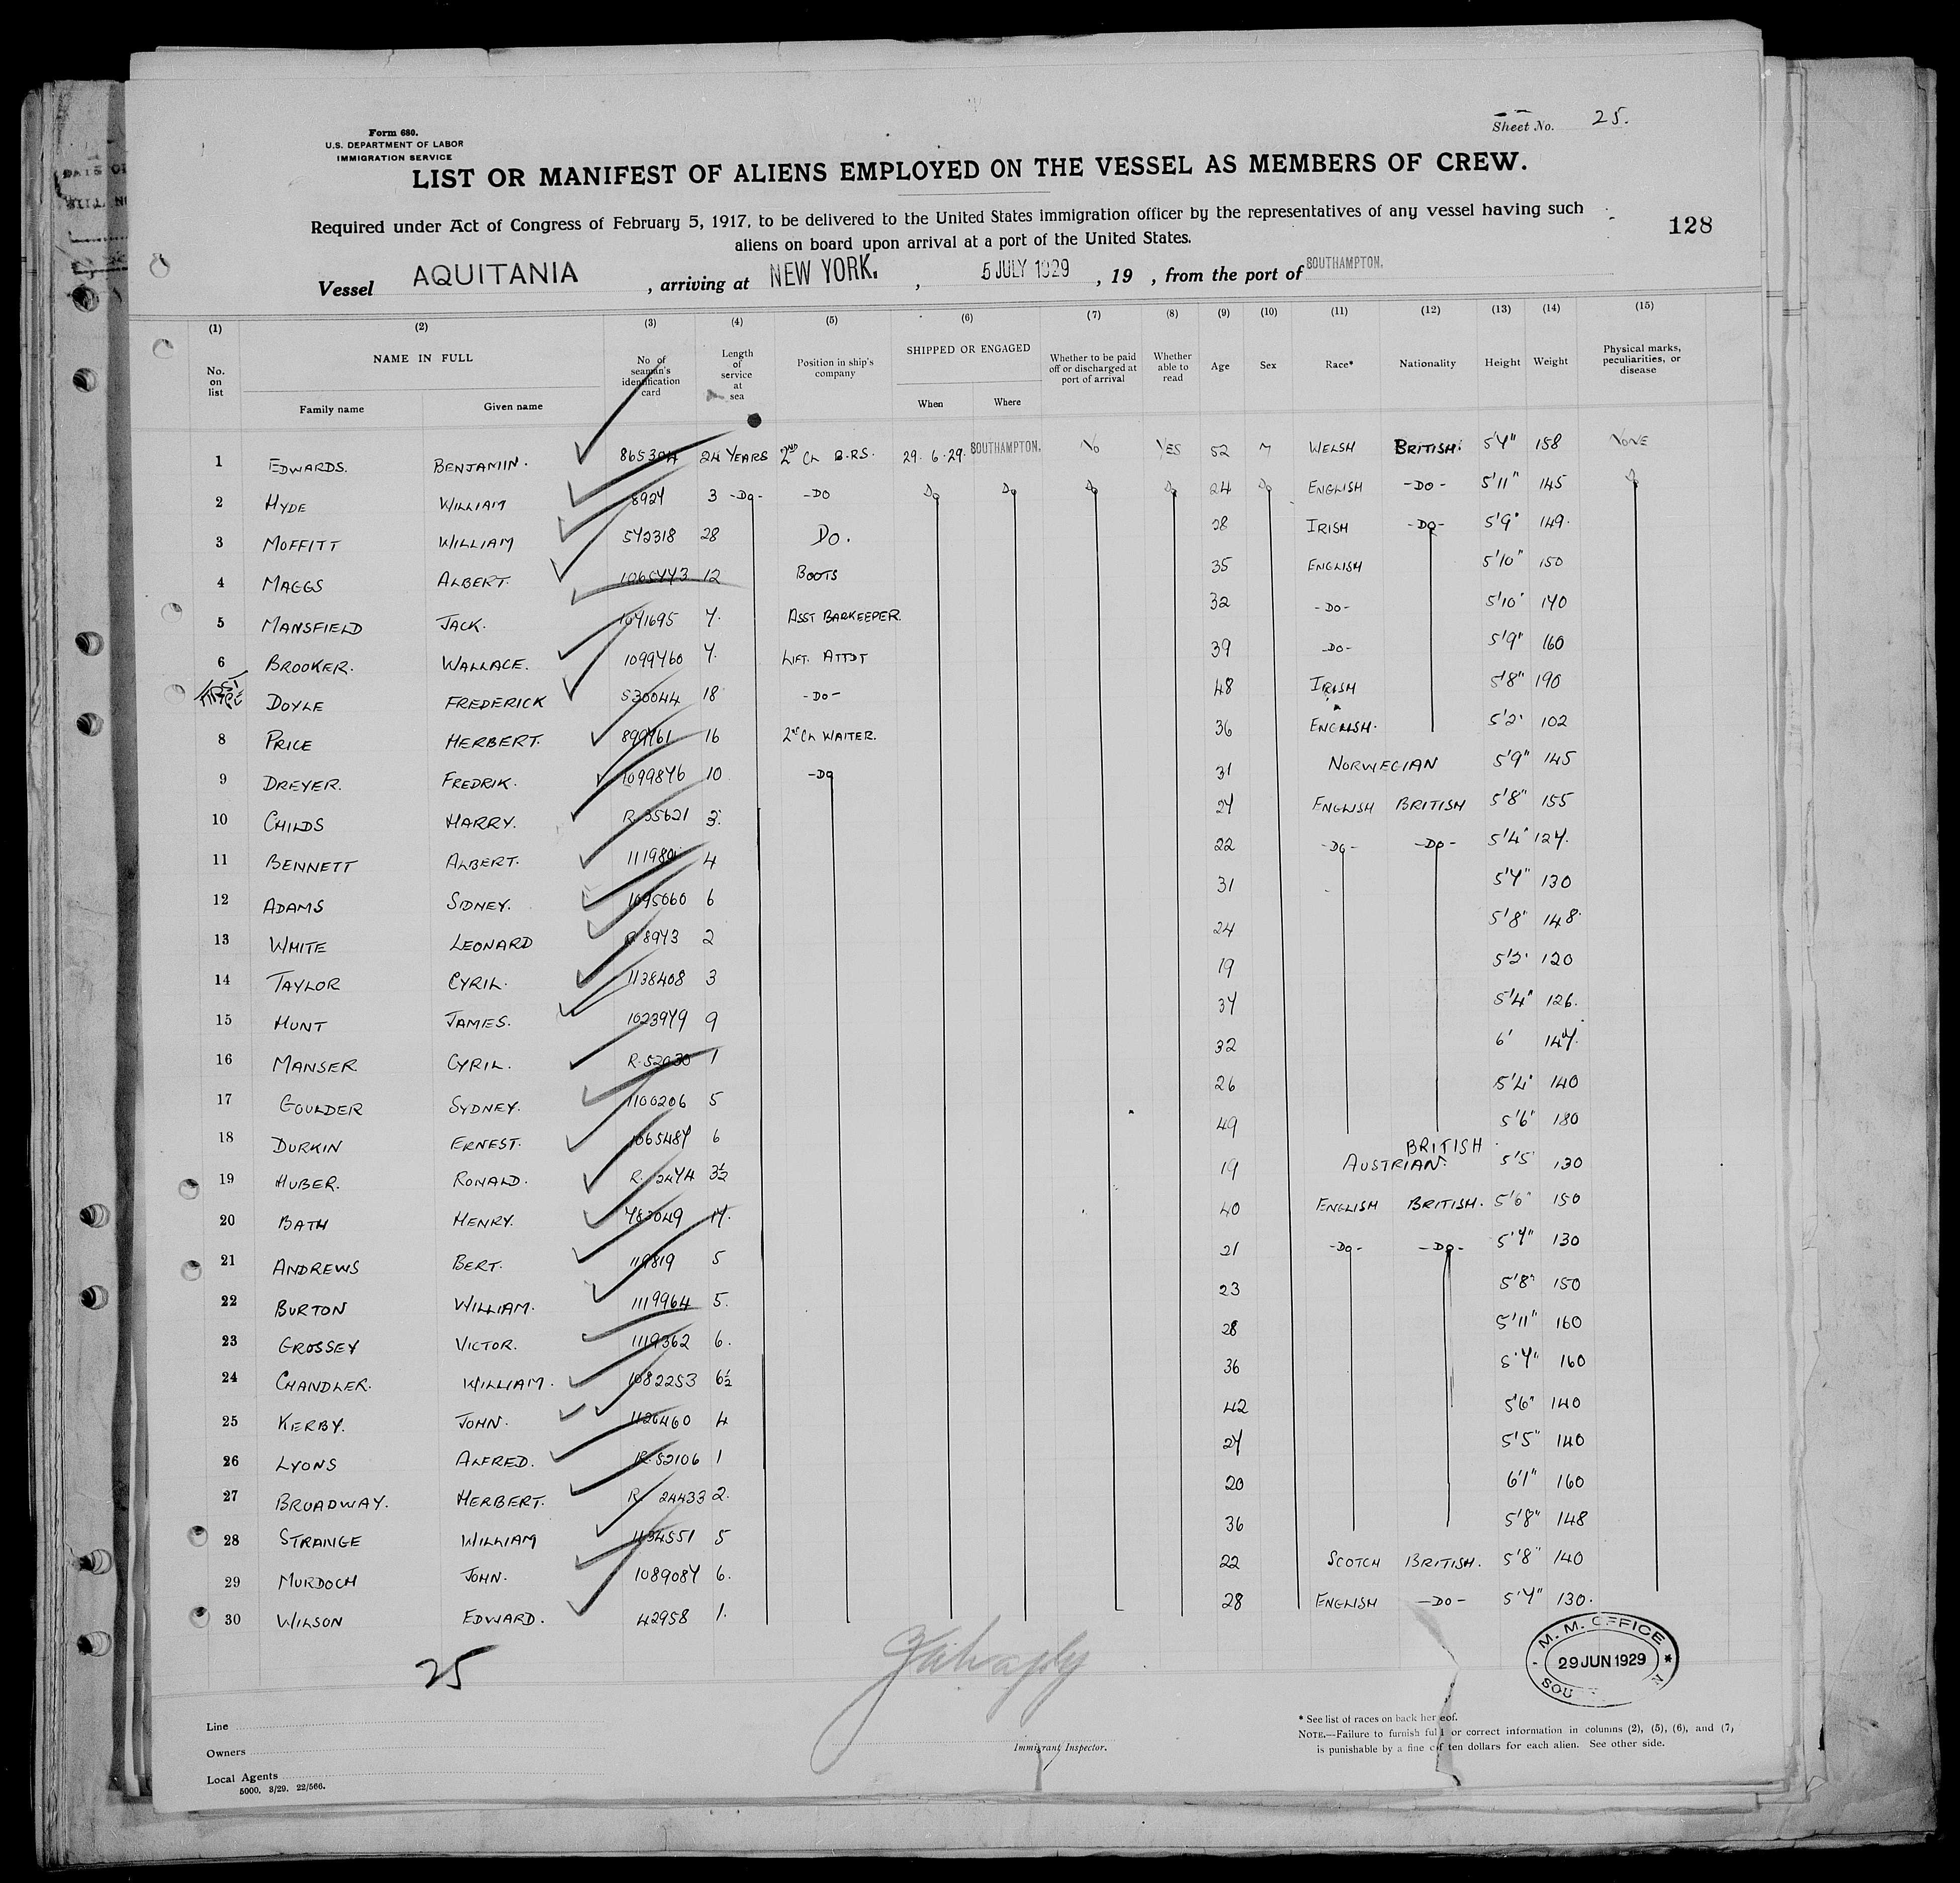 Sheet No. 25.
Form 680.
U.S. DEPARTMENT OF LABOR
IMMIGRATION SERVICE
LIST OR MANIFEST OF ALIENS EMPLOYED ON THE VESSEL AS MEMBERS OF CREW.
Required under Act of Congress of February 5, 1917, to be delivered to the United States immigration officer by the representatives of any vessel having such
aliens on board upon arrival at a port of the United States.
128
Vessel AQUITANIA , arriving at NEW YORK. , 5 JULY 1929 , 19 , from the port of SOUTHAMPTON.
(1) (2) (3) (4) (5) (6) (7) (8) (9) (10) (11) (12) (13) (14) (15)
No. on list NAME IN FULL Family name Given name No of seaman's identification card Length of service at sea Position in ship's company SHIPPED OR ENGAGED When Where Whether to be paid off or discharged at port of arrival Whether able to read Age Sex Race* Nationality Height Weight Physical marks, peculiarities, or disease
1 EDWARDS. BENJAMIN. 865304 24 YEARS 2ND CL B.RS. 29.6.29. SOUTHAMPTON. NO YES 52 M WELSH BRITISH. 5'7" 158 NONE
2 HYDE WILLIAM 8927 3 -DO- -DO DO DO DO DO 24 DO ENGLISH -DO- 5'11" 145 DO
3 MOFFITT WILLIAM 572318 28 DO. 28 IRISH -DO- 5'9" 149.
4 MAGGS ALBERT. 1065773 12 BOOTS 35 ENGLISH 5'10" 150
5 MANSFIELD JACK. 1071695 7. ASST BARKEEPER. 32 -DO- 5'10" 170
6 BROOKER. WALLACE. 1099760 7. LIFT. ATTDT 39 -DO- 5'9" 160
DOYLE FREDERICK 530044 18 -DO- 48 IRISH 5'8" 190
8 PRICE HERBERT. 899761 16 2ND CL WAITER. 36 ENGLISH. 5'2" 102
9 DREYER. FREDRIK. 1099876 10 -DO 31 NORWEGIAN 5'9" 145
10 CHILDS HARRY. R. 35621 3. 27 ENGLISH BRITISH 5'8" 155
11 BENNETT ALBERT. 4 22 -DO- -DO- 5'4" 127.
12 ADAMS SIDNEY. 1095060 6 31 5'7" 130
13 WHITE LEONARD R 8973 2 24 5'8" 148.
14 TAYLOR CYRIL. 1138408 3 19 5'2" 120
15 HUNT JAMES. 1023979 9 37 5'4" 126.
16 MANSER CYRIL. R.52030 1 32 6' 147.
17 GOULDER SYDNEY. 1100206 5 26 5'4" 140
18 DURKIN ERNEST. 1065487 6 49 5'6" 180
19 HUBER. RONALD. R. 2474 3½ 19 AUSTRIAN. BRITISH 5'5" 130
20 BATH HENRY. 783049 17. 40 ENGLISH BRITISH. 5'6" 150
21 ANDREWS BERT. 119819 5 21 -DO- -DO- 5'7" 130
22 BURTON WILLIAM. 1119964 5. 23 5'8" 150
23 GROSSEY VICTOR. 1119362 6. 28 5'11" 160
24 CHANDLER. WILLIAM. 1082253 6½ 36 5'7" 160
25 KERBY. JOHN. 1126460 4 42 5'6" 140
26 LYONS ALFRED. R.52106 1 27 5'5" 140
27 BROADWAY. HERBERT. R. 24433 2. 20 6'1" 160
28 STRANGE WILLIAM 1134551 5 36 5'8" 148
29 MURDOCH JOHN. 1089087 6. 22 SCOTCH BRITISH. 5'8" 140
30 WILSON EDWARD. 42958 1. 28 ENGLISH -DO- 5'7" 130.
25
M. M. OFFICE
29 JUN 1929
Line
Owners
Local Agents
5000. 3/29. 22/566.
Immigrant Inspector.
* See list of races on back hereof.
NOTE.—Failure to furnish full or correct information in columns (2), (5), (6), and (7),
is punishable by a fine of ten dollars for each alien. See other side.